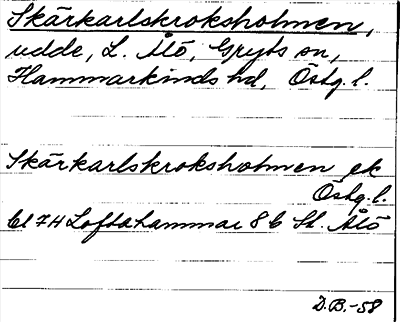 Skärkarlskroksholmen,
udde, L. Ålö, Gryts sn,
Hammarkinds hd, Östg. l.
Skärkarlskroksholmen ek
Östg. l.
bl 7H Loftahammar 8 b St. Ålö
D.B.-58